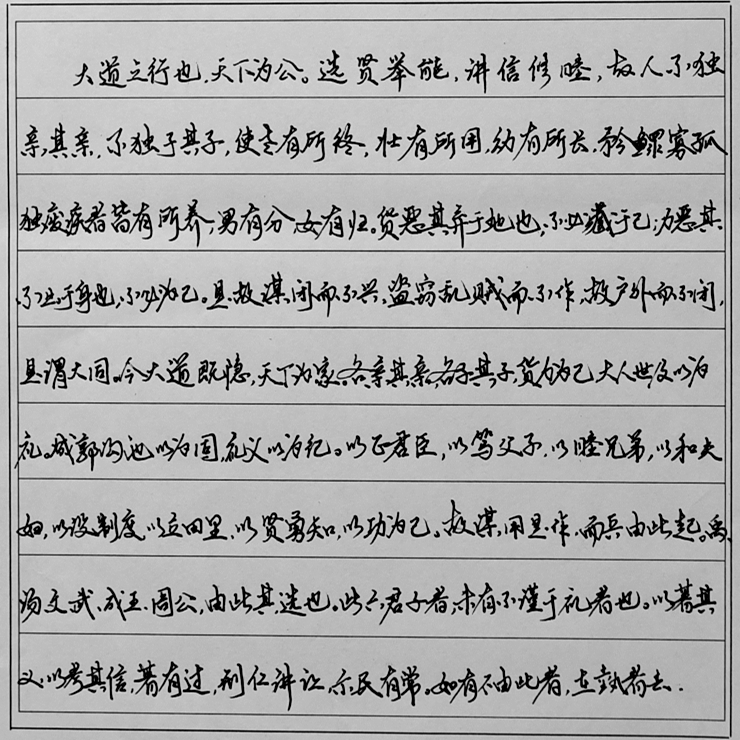 大道之行也，天下为公。选贤举能，讲信修睦，故人不独
亲其亲，不独子其子，使老有所终，壮有所用，幼有所长，矜鳏寡孤
独废疾者皆有所养，男有分，女有归。货恶其弃于地也，不必藏于己；力恶其
不出于身也，不必为己。是故谋闭而不兴，盗窃乱贼而不作，故户外而不闭，
是谓大同。今大道既隐，天下为家，各亲其亲，各子其子，货力为己，大人世及以为
礼。城郭沟池以为固，礼义以为纪。以正君臣，以笃父子，以睦兄弟，以和夫
妇，以设制度，以立田里，以贤勇知，以功为己。故谋用是作，而兵由此起。禹、
汤、文、武、成王、周公，由此其选也。此六君子者，未有不谨于礼者也。以著其
义，以考其信，著有过，刑仁讲让，示民有常。如有不由此者，在埶者去．